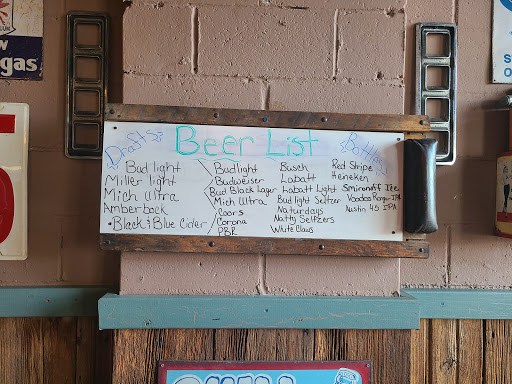 Beer List
Drafts:
Bud light
Miller light
Mich Ultra
Amberbock
Black & Blue Cider
Bottles:
Budlight
Budweiser
Bud Black Lager
Mich Ultra
Coors
Corona
PBR
Busch
Labatt
Labatt Light
Bud light Seltzer
Naturdays
Natty Seltzers
White Claws
Red Stripe
Heineken
Smirnoff Ice
Voodoo Ranger IPA
Austin 45 IPA
gas